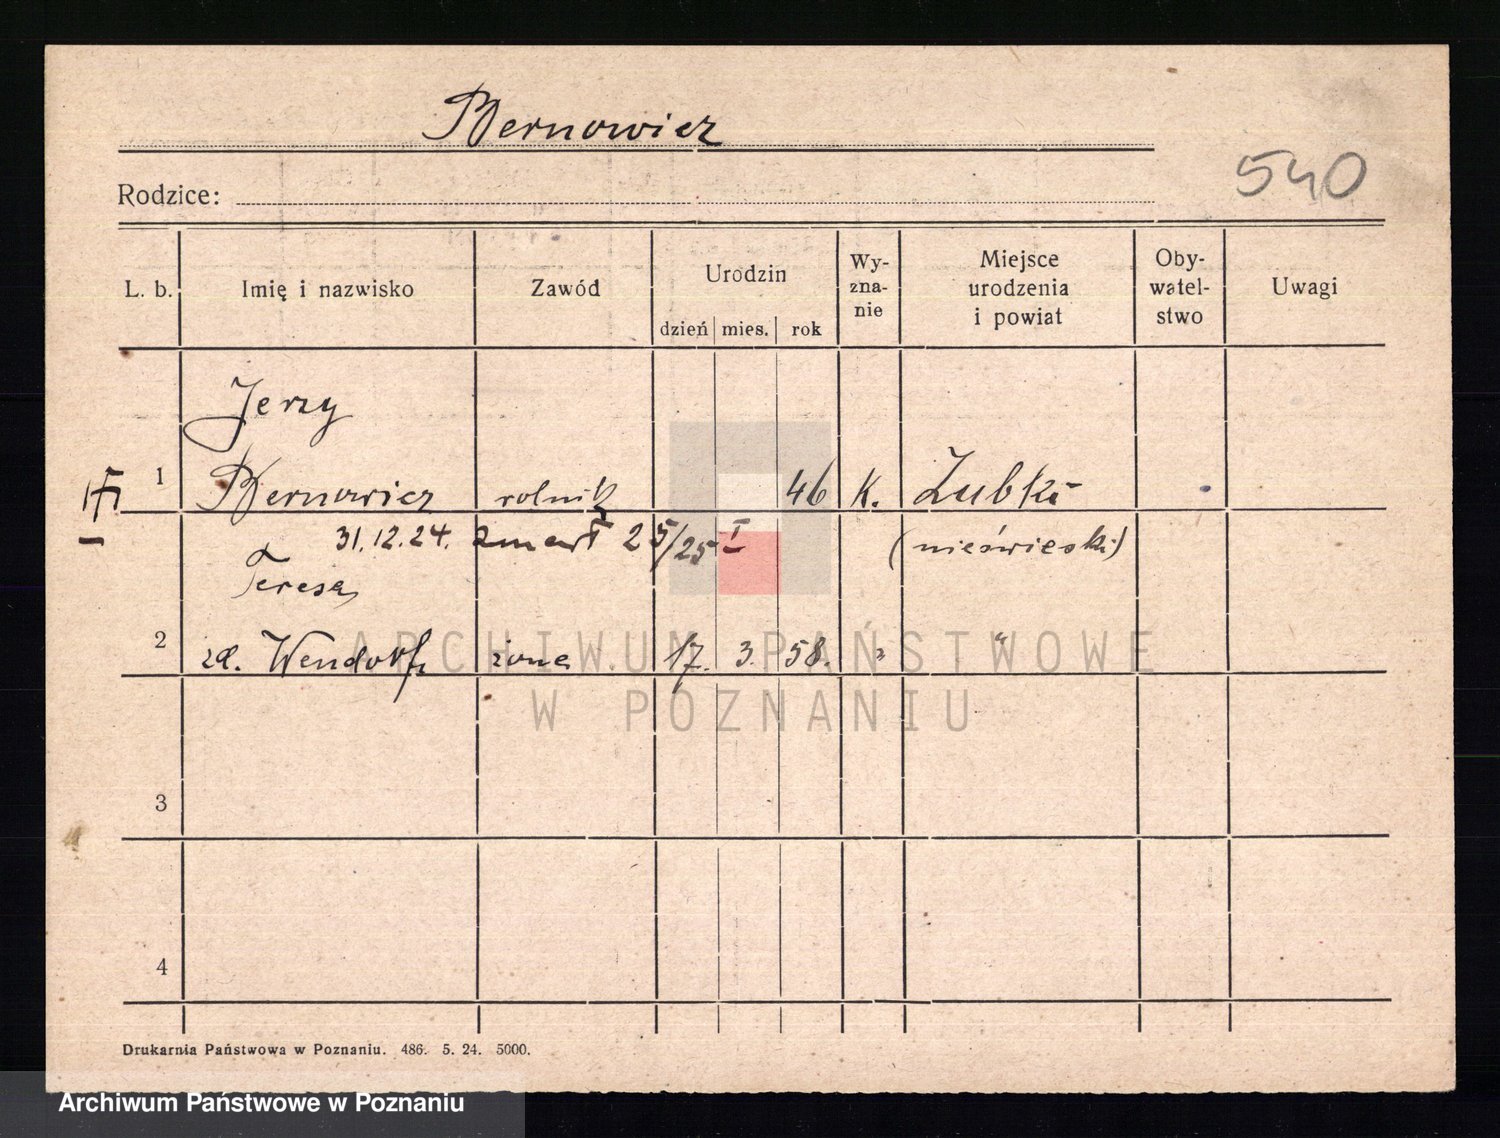 Bernowicz
540
Rodzice:
L. b. Imię i nazwisko Zawód Urodzin dzień mies. rok Wy-zna-nie Miejsce urodzenia i powiat Oby-watel-stwo Uwagi
Jerzy
1 Bernowicz rolnik 46 K. Zubki
31.12.24. zmarł 25/25 I (nieświeski)
Teresa
2 zd. Wendorf żona 17. 3. 58. " "
3
4
ARCHIWUM PAŃSTWOWE
W POZNANIU
Drukarnia Państwowa w Poznaniu. 486. 5. 24. 5000.
Archiwum Państwowe w Poznaniu